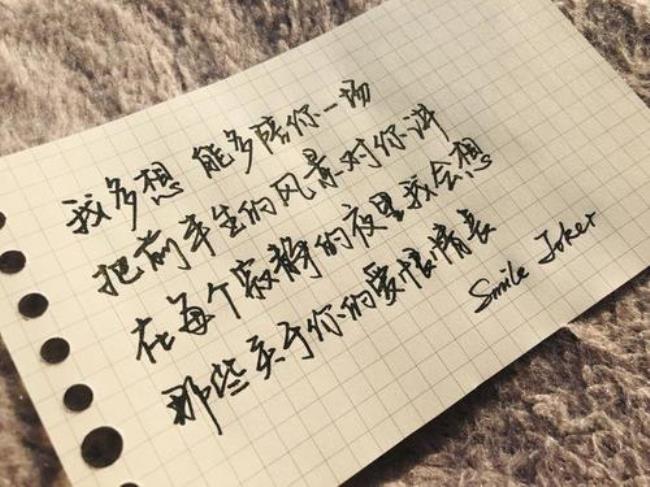 我多想 能多陪你一场
把前半生的风景对你讲
在每个寂静的夜里我会想
那些关于你的爱恨情长
Smile Joker